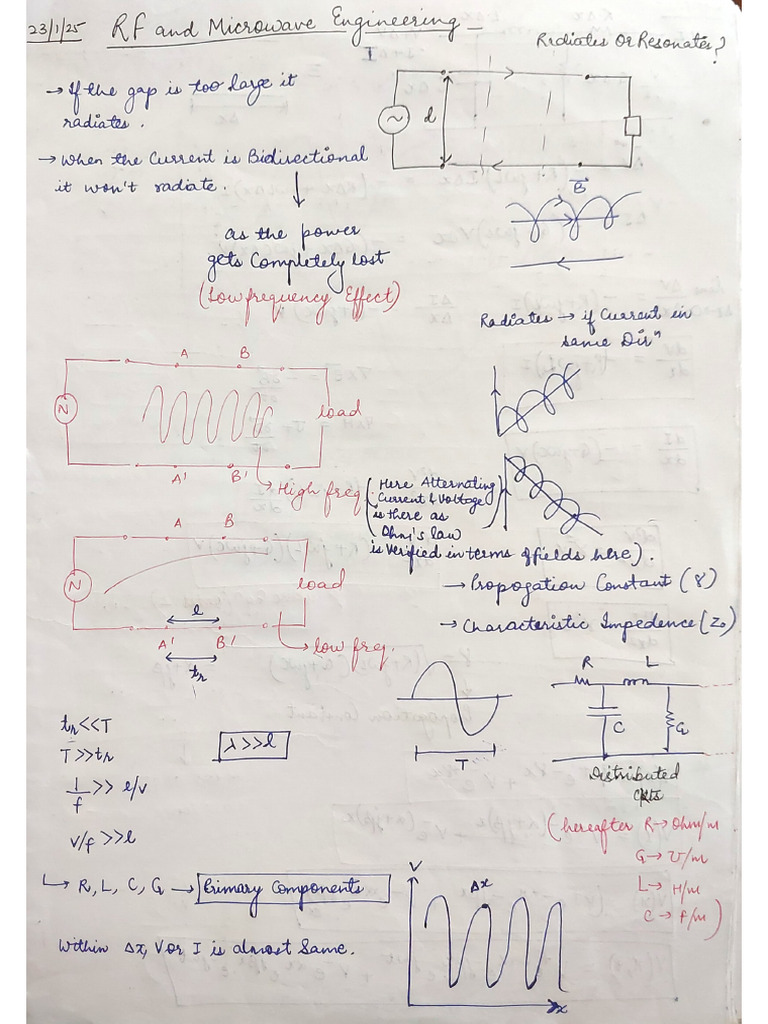 23/1/25 RF and Microwave Engineering
I
Radiates or Resonates?
→ If the gap is too large it
radiates.
d
→ When the Current is Bidirectional
it won't radiate.
B
as the power
gets Completely lost
(Low frequency Effect)
Radiates → if Current in
same Dirⁿ
A B
N
load
A' B'
→ High freq.
(Here Alternating
Current & Voltage
is there as
Ohm's law
is verified in terms of fields here).
A B
N
load
l
A' B'
→ low freq.
tr
→ Propogation Constant (γ)
→ Characteristic Impedence (Z₀)
R L
C G
T
Distributed
Ckts
tr<<T
T>>tr
λ>>l
1/f >> l/v
v/f >>l
(hereafter R→ Ohm/m
G→ ℧/m
L→ H/m
C → F/m)
↳ R, L, C, G → Primary Components
V
Δx
x
Within Δx, V or I is almost Same.